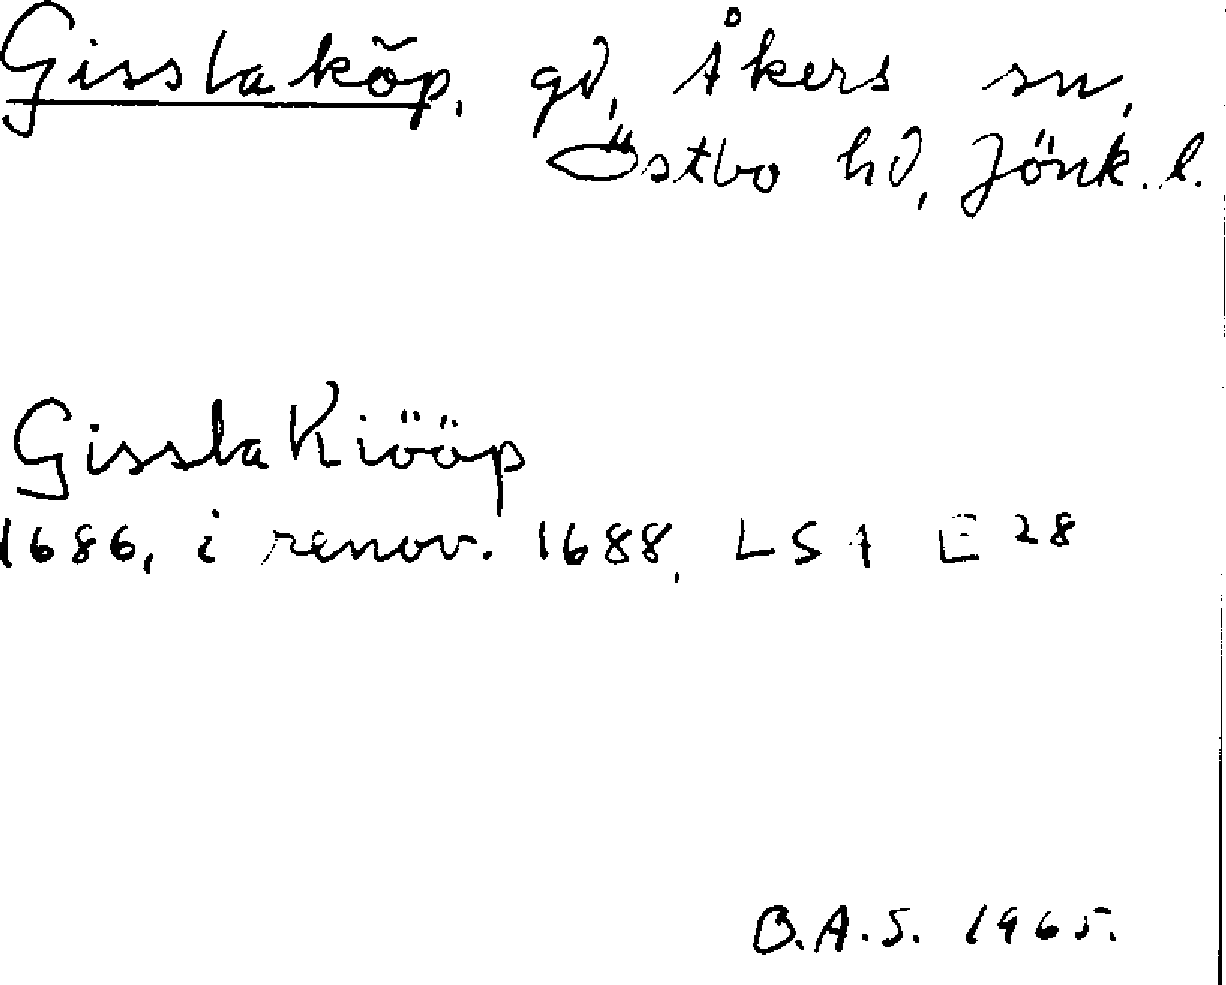 Gisslaköp, gd, Åkers sn,
Östbo hd, Jönk. l.
Gissla Kiööp
1686, i renov. 1688, LSA E 28
B.A.S. 1965.